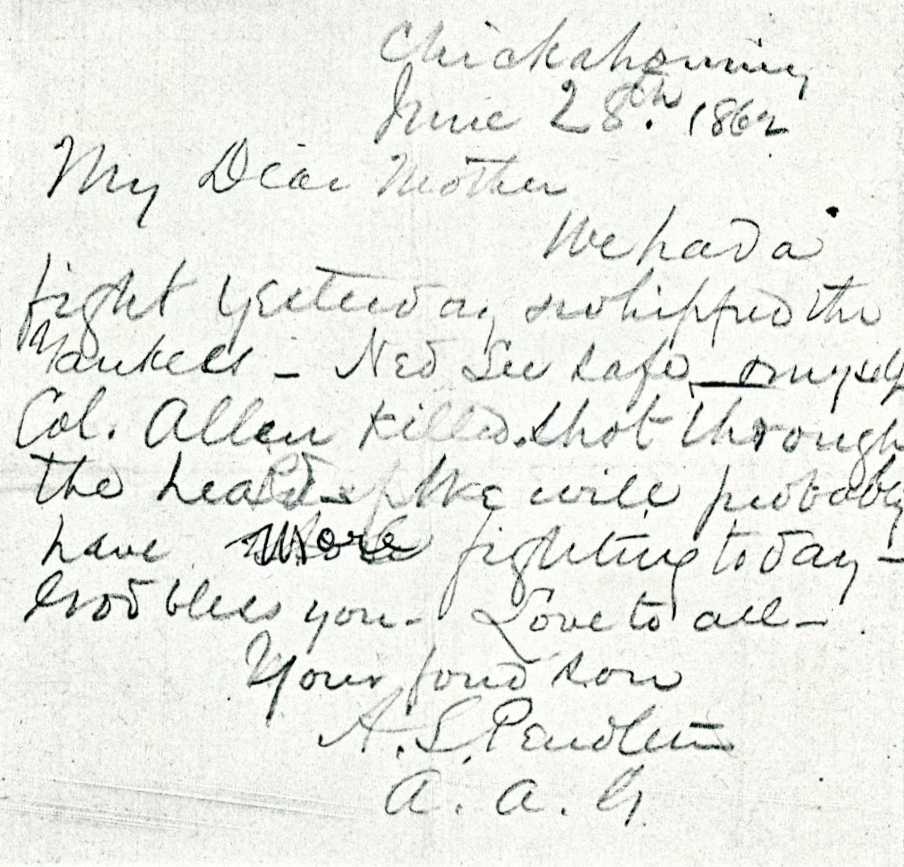 Chickahominy
June 28th. 1862
My Dear Mother
We had a
fight yesterday & whipped the
Yankees - Ned Lee safe & myself
Col. Allen killed. Shot through
the head - We will probably
have more fighting today -
God bless you - Love to all -
Your fond son
A. S. Pendleton
A. A. G.